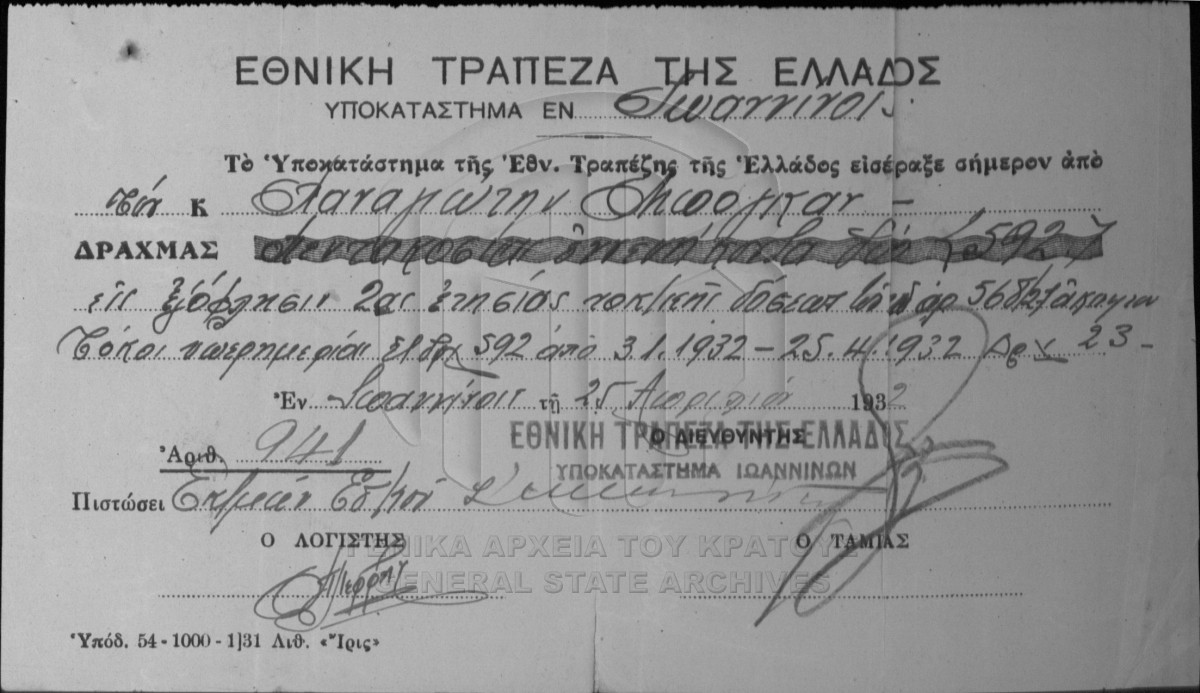 ΕΘΝΙΚΗ ΤΡΑΠΕΖΑ ΤΗΣ ΕΛΛΑΔΟΣ
ΥΠΟΚΑΤΑΣΤΗΜΑ ΕΝ Ιωαννίνοις
Τὸ Ὑποκατάστημα τῆς Ἐθν. Τραπέζης τῆς Ἑλλάδος εἰσέραξε σήμερον ἀπὸ
τὸν κ Παναγιώτην
ΔΡΑΧΜΑΣ πεντακοσίας ἐνενήκοντα δύο 592
εἰς ἐξόφλησιν 2ας ἐτησίας δόσεως 56
Τόκοι ὑπερημερίας 592 ἀπὸ 31.1.1932 - 25.4.1932 Δρχ 23 -
Ἐν Ιωαννίνοις τῇ 25 Απριλίου 1932
Ο ΔΙΕΥΘΥΝΤΗΣ
ΕΘΝΙΚΗ ΤΡΑΠΕΖΑ ΤΗΣ ΕΛΛΑΔΟΣ
ΥΠΟΚΑΤΑΣΤΗΜΑ ΙΩΑΝΝΙΝΩΝ
Ἀριθ. 941
Πιστώσει
Ο ΛΟΓΙΣΤΗΣ Ο ΤΑΜΙΑΣ
ΓΕΝΙΚΑ ΑΡΧΕΙΑ ΤΟΥ ΚΡΑΤΟΥΣ
GENERAL STATE ARCHIVES
Ὑπόδ. 54 - 1000 - 1]31 Λιθ. «Ἴρις»